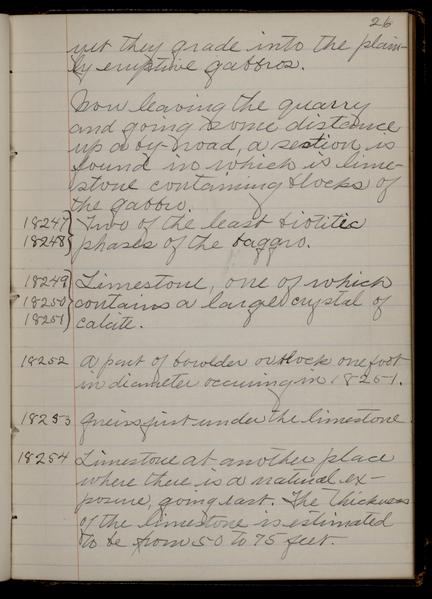 26
yet they grade into the plain-
ly eruptive gabbros.
Now leaving the quarry
and going some distance
up a by-road, a section is
found in which is lime-
stone containing blocks of
the gabbro.
18247 } Two of the least biotitic
18248 } phases of the baggro.
18249 } Limestone, one of which
18250 } contains a large crystal of
18251 } calcite.
18252 A part of bowlder or block one foot
in diameter occuring in 18251.
18253 Gneiss just under the limestone
18254 Limestone at another place
where there is a natural ex-
posure, going east. The thickness
of the limestone is estimated
to be from 50 to 75 feet.